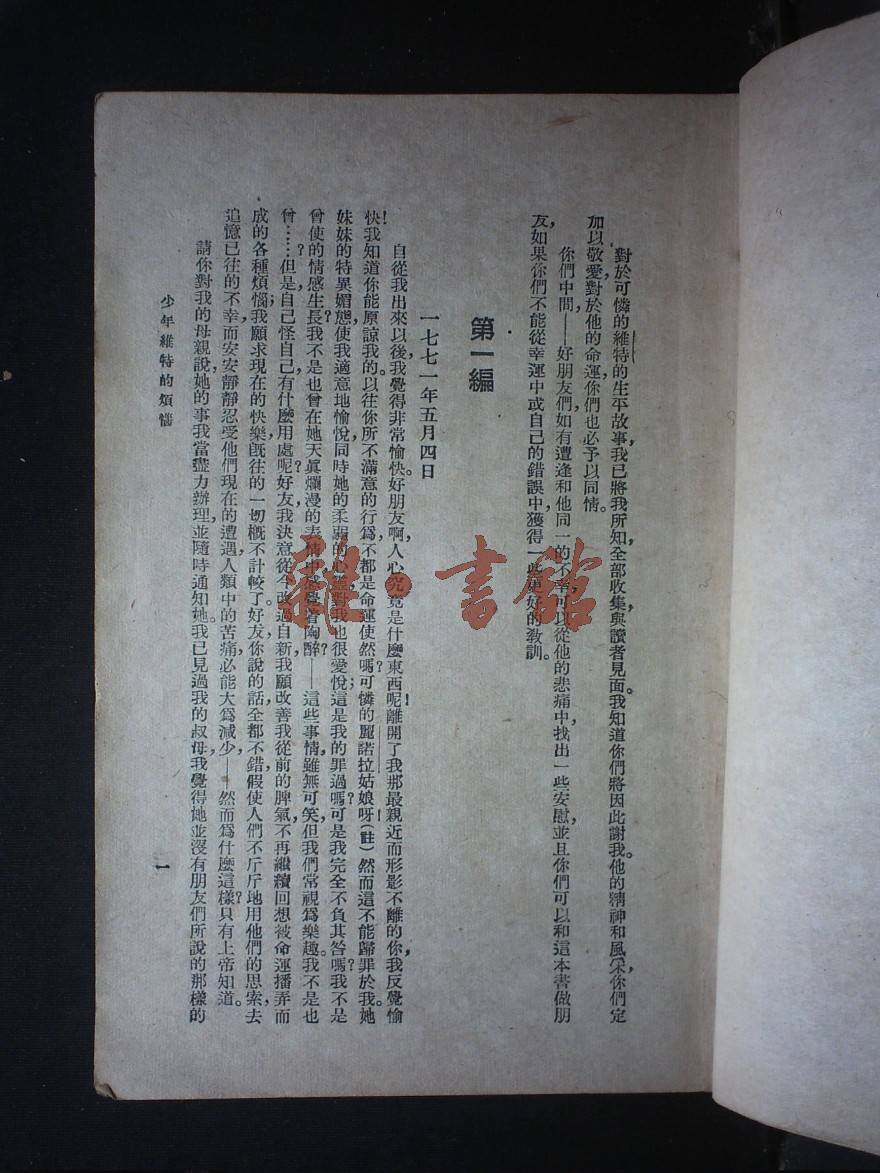 對於可憐的維特的生平故事，我已將我所知，全部收集，與讀者見面。我知道你們將因此謝我。他的精神和風采，你們定
加以敬愛，對於他的命運，你們也必予以同情。
你們中間——好朋友們，如有遭逢和他同一的不幸，可以從他的悲痛中，找出一些安慰，並且你們可以和這本書做朋
友，如果你們不能從幸運中或自己的錯誤中，獲得一些更好的教訓。
第一編
一七七一年五月四日
自從我出來以後，我覺得非常愉快。好朋友啊，人心究竟是什麼東西呢！離開了我那最親近而形影不離的你，我反覺愉
快！我知道你能原諒我的。以往你所不滿意的行爲，不都是命運使然嗎？可憐的麗諾拉姑娘呀！(註)然而這不能歸罪於我。她
妹妹的特異媚態，使我適意地愉悅，同時她的柔弱的心靈，對我也很愛悅；這是我的罪過嗎？可是我完全不負其咎嗎？我不是
曾使的情感生長？我不是也曾在她天眞爛漫的表情中，感覺着陶醉？——這些事情雖無可笑，但我們常視爲樂趣。我不是也
曾？……但是自己怪自己，有什麼用處呢？好友，我決意從今改過自新，我願改善我從前的脾氣，不再繼續回想被命運播弄而
成的各種煩惱；我願求現在的快樂，旣往的一切，概不計較了。好友，你說的話全都不錯，假使人們不斤斤地用他們的思索去
追憶已往的不幸，而安安靜靜忍受他們現在的遭遇，人類中的苦痛，必能大爲減少——然而爲什麼這樣？只有上帝知道。
請你對我的母親說，她的事我當盡力辦理，並隨時通知她。我已見過我的叔母，我覺得她並沒有朋友們所說的那樣的
少年維特的煩惱
一
雜·書館